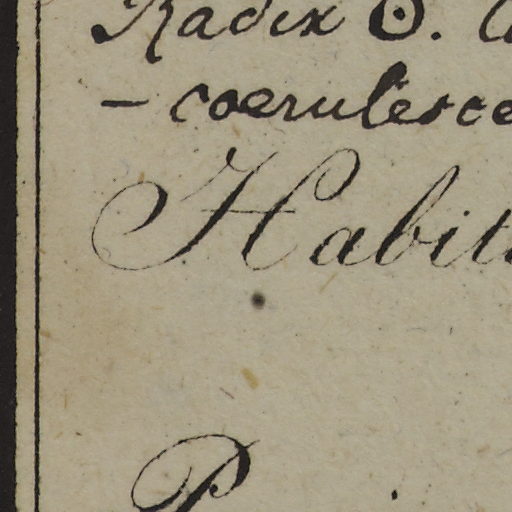 Radix ☉.
- coerulesce
Habit
P